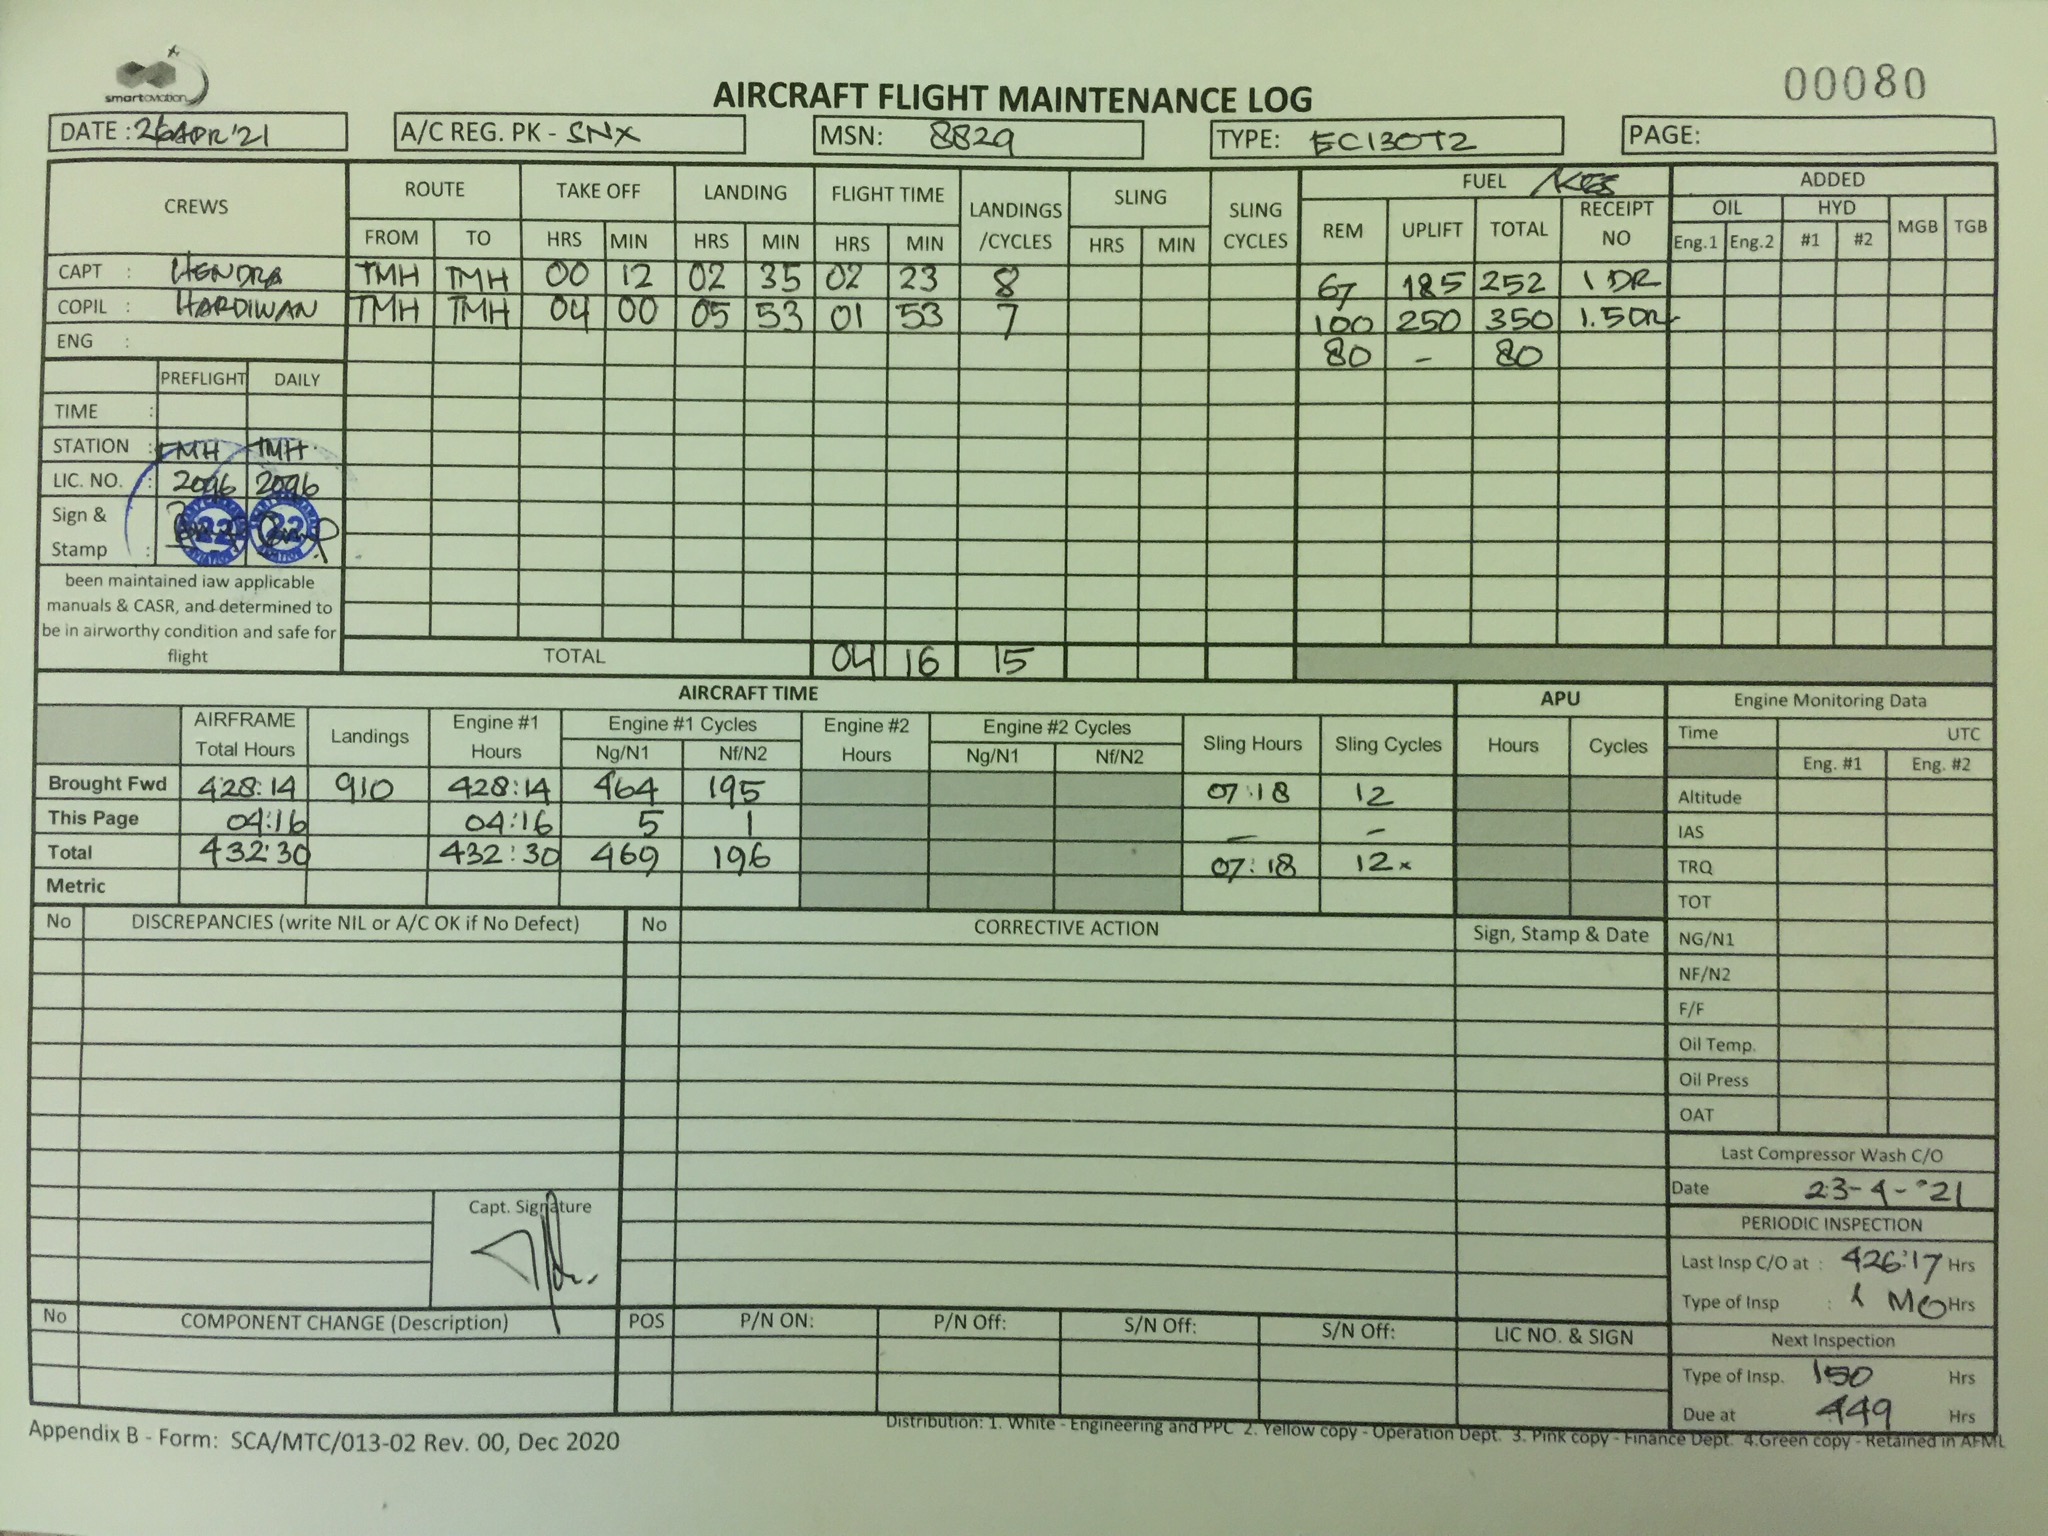 smartaviation
AIRCRAFT FLIGHT MAINTENANCE LOG
00080
DATE : 26 APR '21
A/C REG. PK - SNX
MSN: 8829
TYPE: EC130T2
PAGE:
CREWS ROUTE TAKE OFF LANDING FLIGHT TIME LANDINGS /CYCLES SLING SLING CYCLES FUEL KGS ADDED
FROM TO HRS MIN HRS MIN HRS MIN HRS MIN REM UPLIFT TOTAL RECEIPT NO OIL HYD MGB TGB
Eng.1 Eng.2 #1 #2
CAPT : HENDRA TMH TMH 00 12 02 35 02 23 8 67 185 252 1 DR
COPIL : HARDIWAN TMH TMH 04 00 05 53 01 53 7 100 250 350 1.5 DR
ENG : 80 - 80
PREFLIGHT DAILY
TIME :
STATION : TMH TMH
LIC. NO. : 2096 2096
Sign & Stamp :
22 22
been maintained iaw applicable
manuals & CASR, and determined to
be in airworthy condition and safe for
flight
TOTAL 04 16 15
AIRCRAFT TIME
APU
Engine Monitoring Data
AIRFRAME Total Hours Landings Engine #1 Hours Engine #1 Cycles Engine #2 Hours Engine #2 Cycles Sling Hours Sling Cycles Hours Cycles
Ng/N1 Nf/N2 Ng/N1 Nf/N2
Brought Fwd 428:14 910 428:14 464 195 07:18 12
This Page 04:16 04:16 5 1 - -
Total 432:30 432:30 469 196 07:18 12x
Metric
Time UTC
Eng. #1 Eng. #2
Altitude
IAS
TRQ
TOT
NG/N1
NF/N2
F/F
Oil Temp.
Oil Press
OAT
No DISCREPANCIES (write NIL or A/C OK if No Defect) No CORRECTIVE ACTION Sign, Stamp & Date
Capt. Signature
Last Compressor Wash C/O
Date 23-4-'21
PERIODIC INSPECTION
Last Insp C/O at : 426:17 Hrs
Type of Insp : 1 MO Hrs
Next Inspection
Type of Insp. 150 Hrs
Due at 449 Hrs
No COMPONENT CHANGE (Description) POS P/N ON: P/N Off: S/N Off: S/N Off: LIC NO. & SIGN
Appendix B - Form: SCA/MTC/013-02 Rev. 00, Dec 2020
Distribution: 1. White - Engineering and PPC 2. Yellow copy - Operation Dept. 3. Pink copy - Finance Dept. 4.Green copy - Retained in AFML